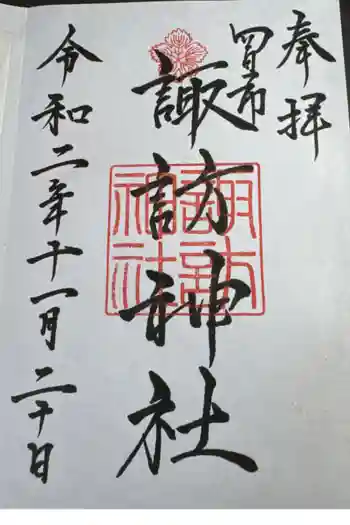 奉拝
四日市
諏訪神社
諏訪神社
令和二年十一月二十日